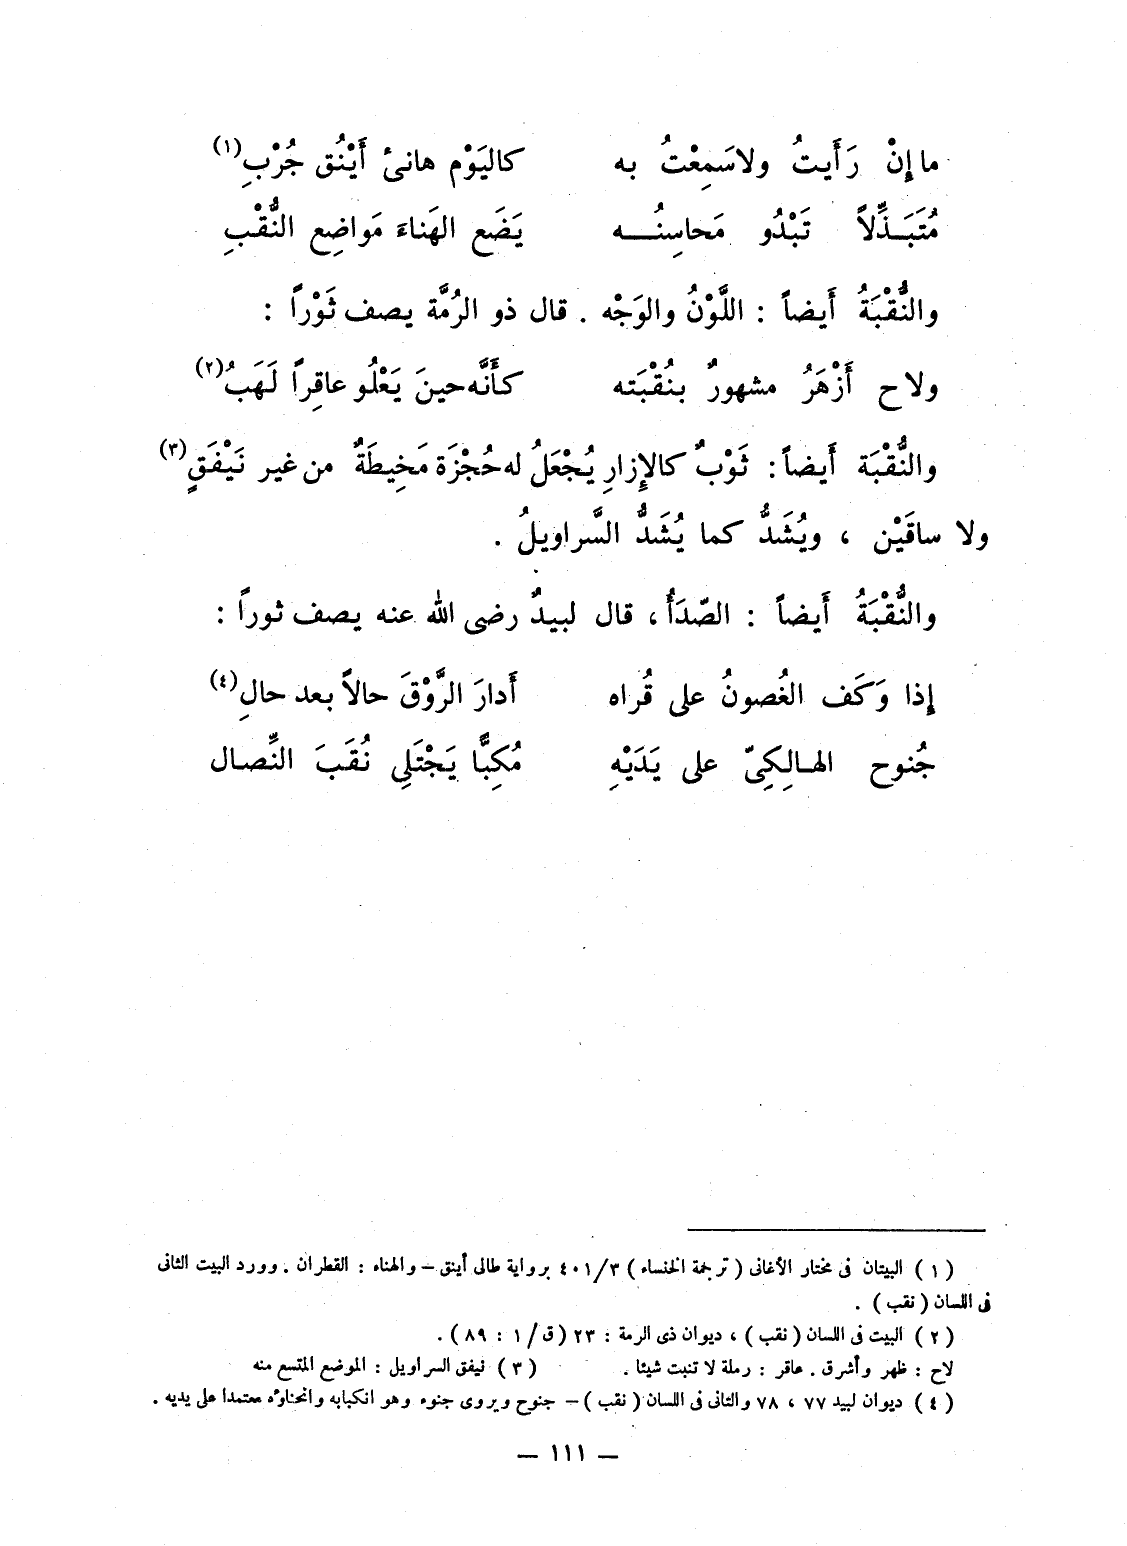 ما إِنْ رَأَيتُ ولا سَمِعْتُ به كاليَوْم هانئ أَيْنُق جُرْبِ(١)
مُتَبَــذِّلاً تَبْدُو مَحاسِنُــــه يَضَع الهَناءَ مَواضِع النُّقْبِ
والنُّقْبَةُ أَيضاً : اللَّوْنُ والوَجْه . قال ذو الرُمَّة يصف ثَوْراً :
ولاح أَزْهَرُ مشهورٌ بنُقْبَته كأَنَّه حينَ يَعْلُو عاقِراً لَهَبُ(٢)
والنُّقْبَة أَيضاً : ثَوْبٌ كالإِزارِ يُجْعَلُ له حُجْزَة مَخِيطَةٌ من غير نَيْفَقٍ(٣)
ولا ساقَيْن ، ويُشَدُّ كما يُشَدُّ السَّراويلُ .
والنُّقْبَةُ أَيضاً : الصّدَأُ ، قال لبيدٌ رضى الله عنه يصف ثوراً :
إِذا وَكَف الغُصونُ على قُراه أَدارَ الرَّوْقَ حالاً بعد حالِ(٤)
جُنوح الهـالِكِىّ على يَدَيْهِ مُكِبًّا يَجْتَلِى نُقَبَ النِّصال
( ١ ) البيتان فى مختار الأغانى ( ترجمة الخنساء ) ٤٠١/٣ برواية طالى أينق – والهناء : القطران . وورد البيت الثانى
فى اللسان ( نقب ) .
( ٢ ) البيت فى اللسان ( نقب ) ، ديوان ذى الرمة : ٢٣ ( ق/١ : ٨٩ ) .
لاح : ظهر وأشرق . عاقر : رملة لا تنبت شيئا . ( ٣ ) نيفق السراويل : الموضع المتسع منه
( ٤ ) ديوان لبيد ٧٧ ، ٧٨ والثانى فى اللسان ( نقب ) – جنوح ويروى جنوء وهو انكبابه وانحناؤه معتمدا على يديه .
— ١١١ —